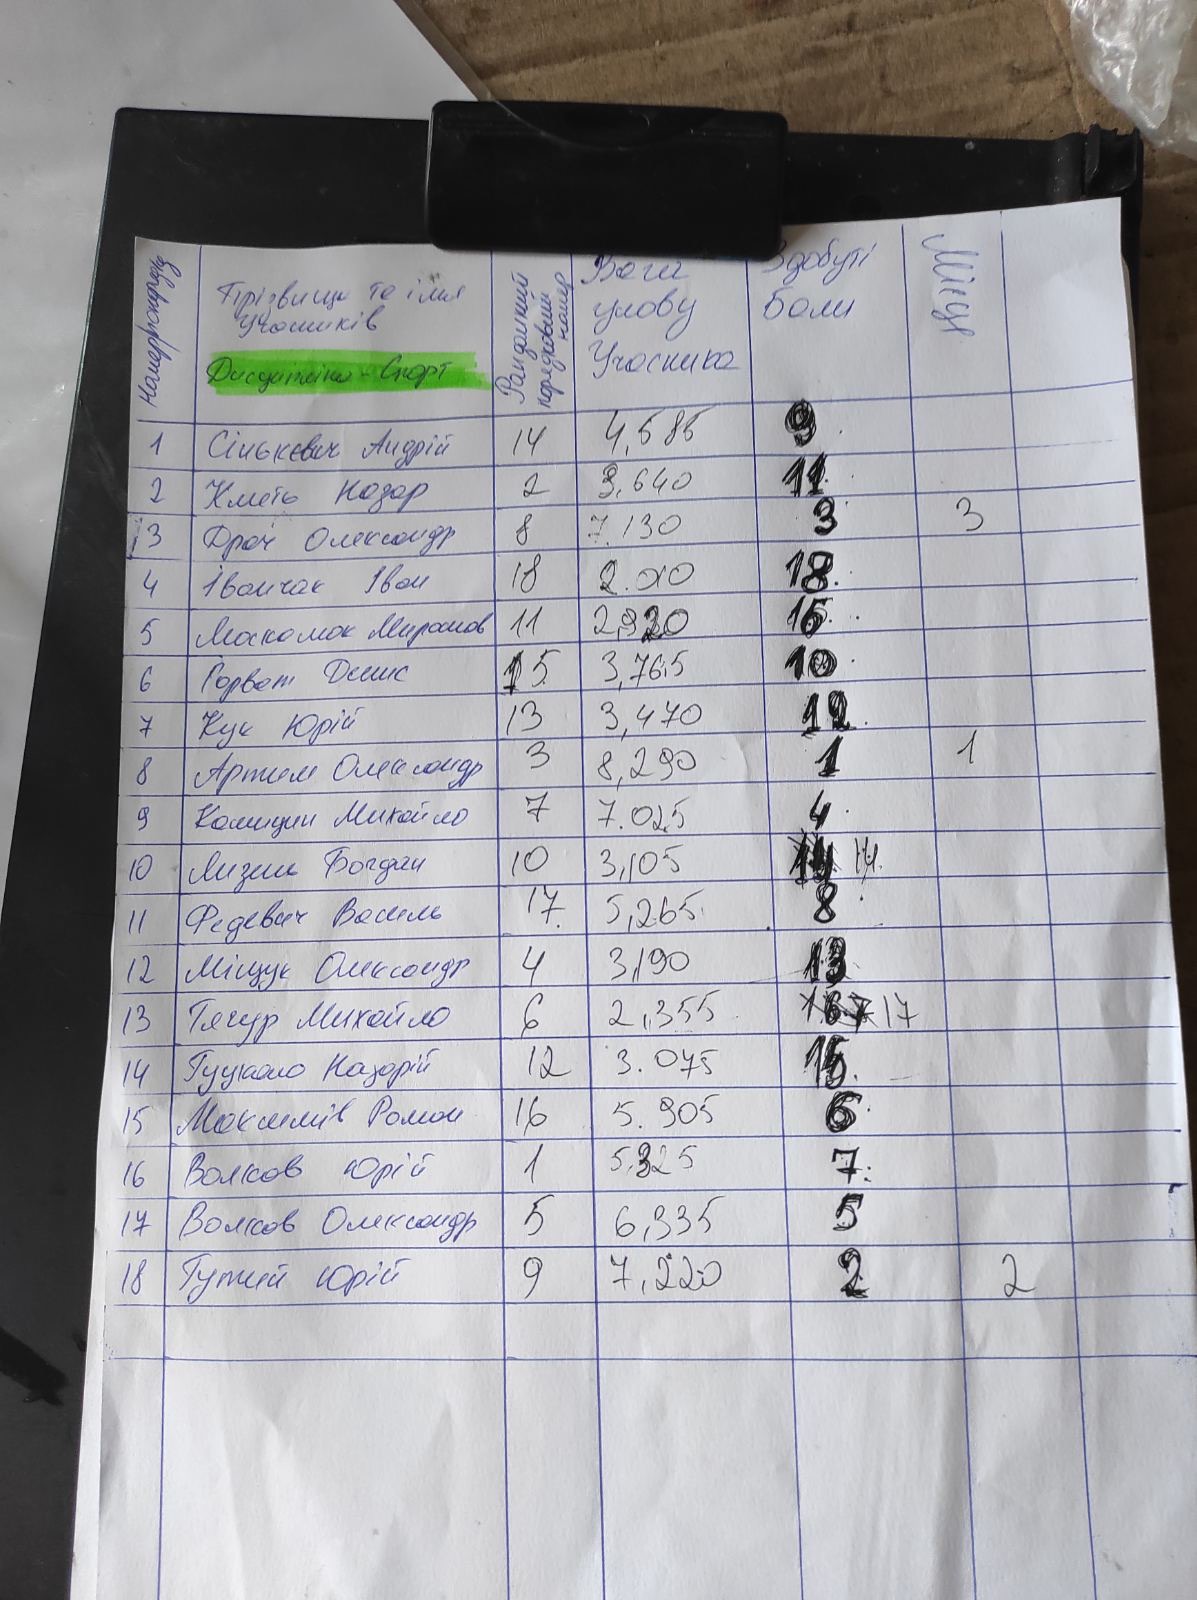 Прізвище та імя
Учасників
Дисципліна - Спорт
Рандомний порядковий номер
Вага улову Учасника
Здобуті Бали
Місце
1 Сінькевич Андрій 14 4,585 9
2 Кметь Назар 2 3,640 11
3 Драч Олександр 8 7.130 3 3
4 Іванчак Іван 18 2.010 18
5 11 2,920 16
6 Горват Денис 15 3,765 10
7 Кук Юрій 13 3,470 12
8 Артим Олександр 3 8,290 1 1
9 Михайло 7 7.025 4
10 Богдан 10 3,105 14
11 Федевич Василь 17 5,265 8
12 Міщук Олександр 4 3,190 13
13 Тячур Михайло 6 2,355 17
14 Назарій 12 3.075 15
15 Максимів Роман 16 5.905 6
16 Волков Юрій 1 5.325 7
17 Волков Олександр 5 6,335 5
18 Гутий Юрій 9 7,220 2 2